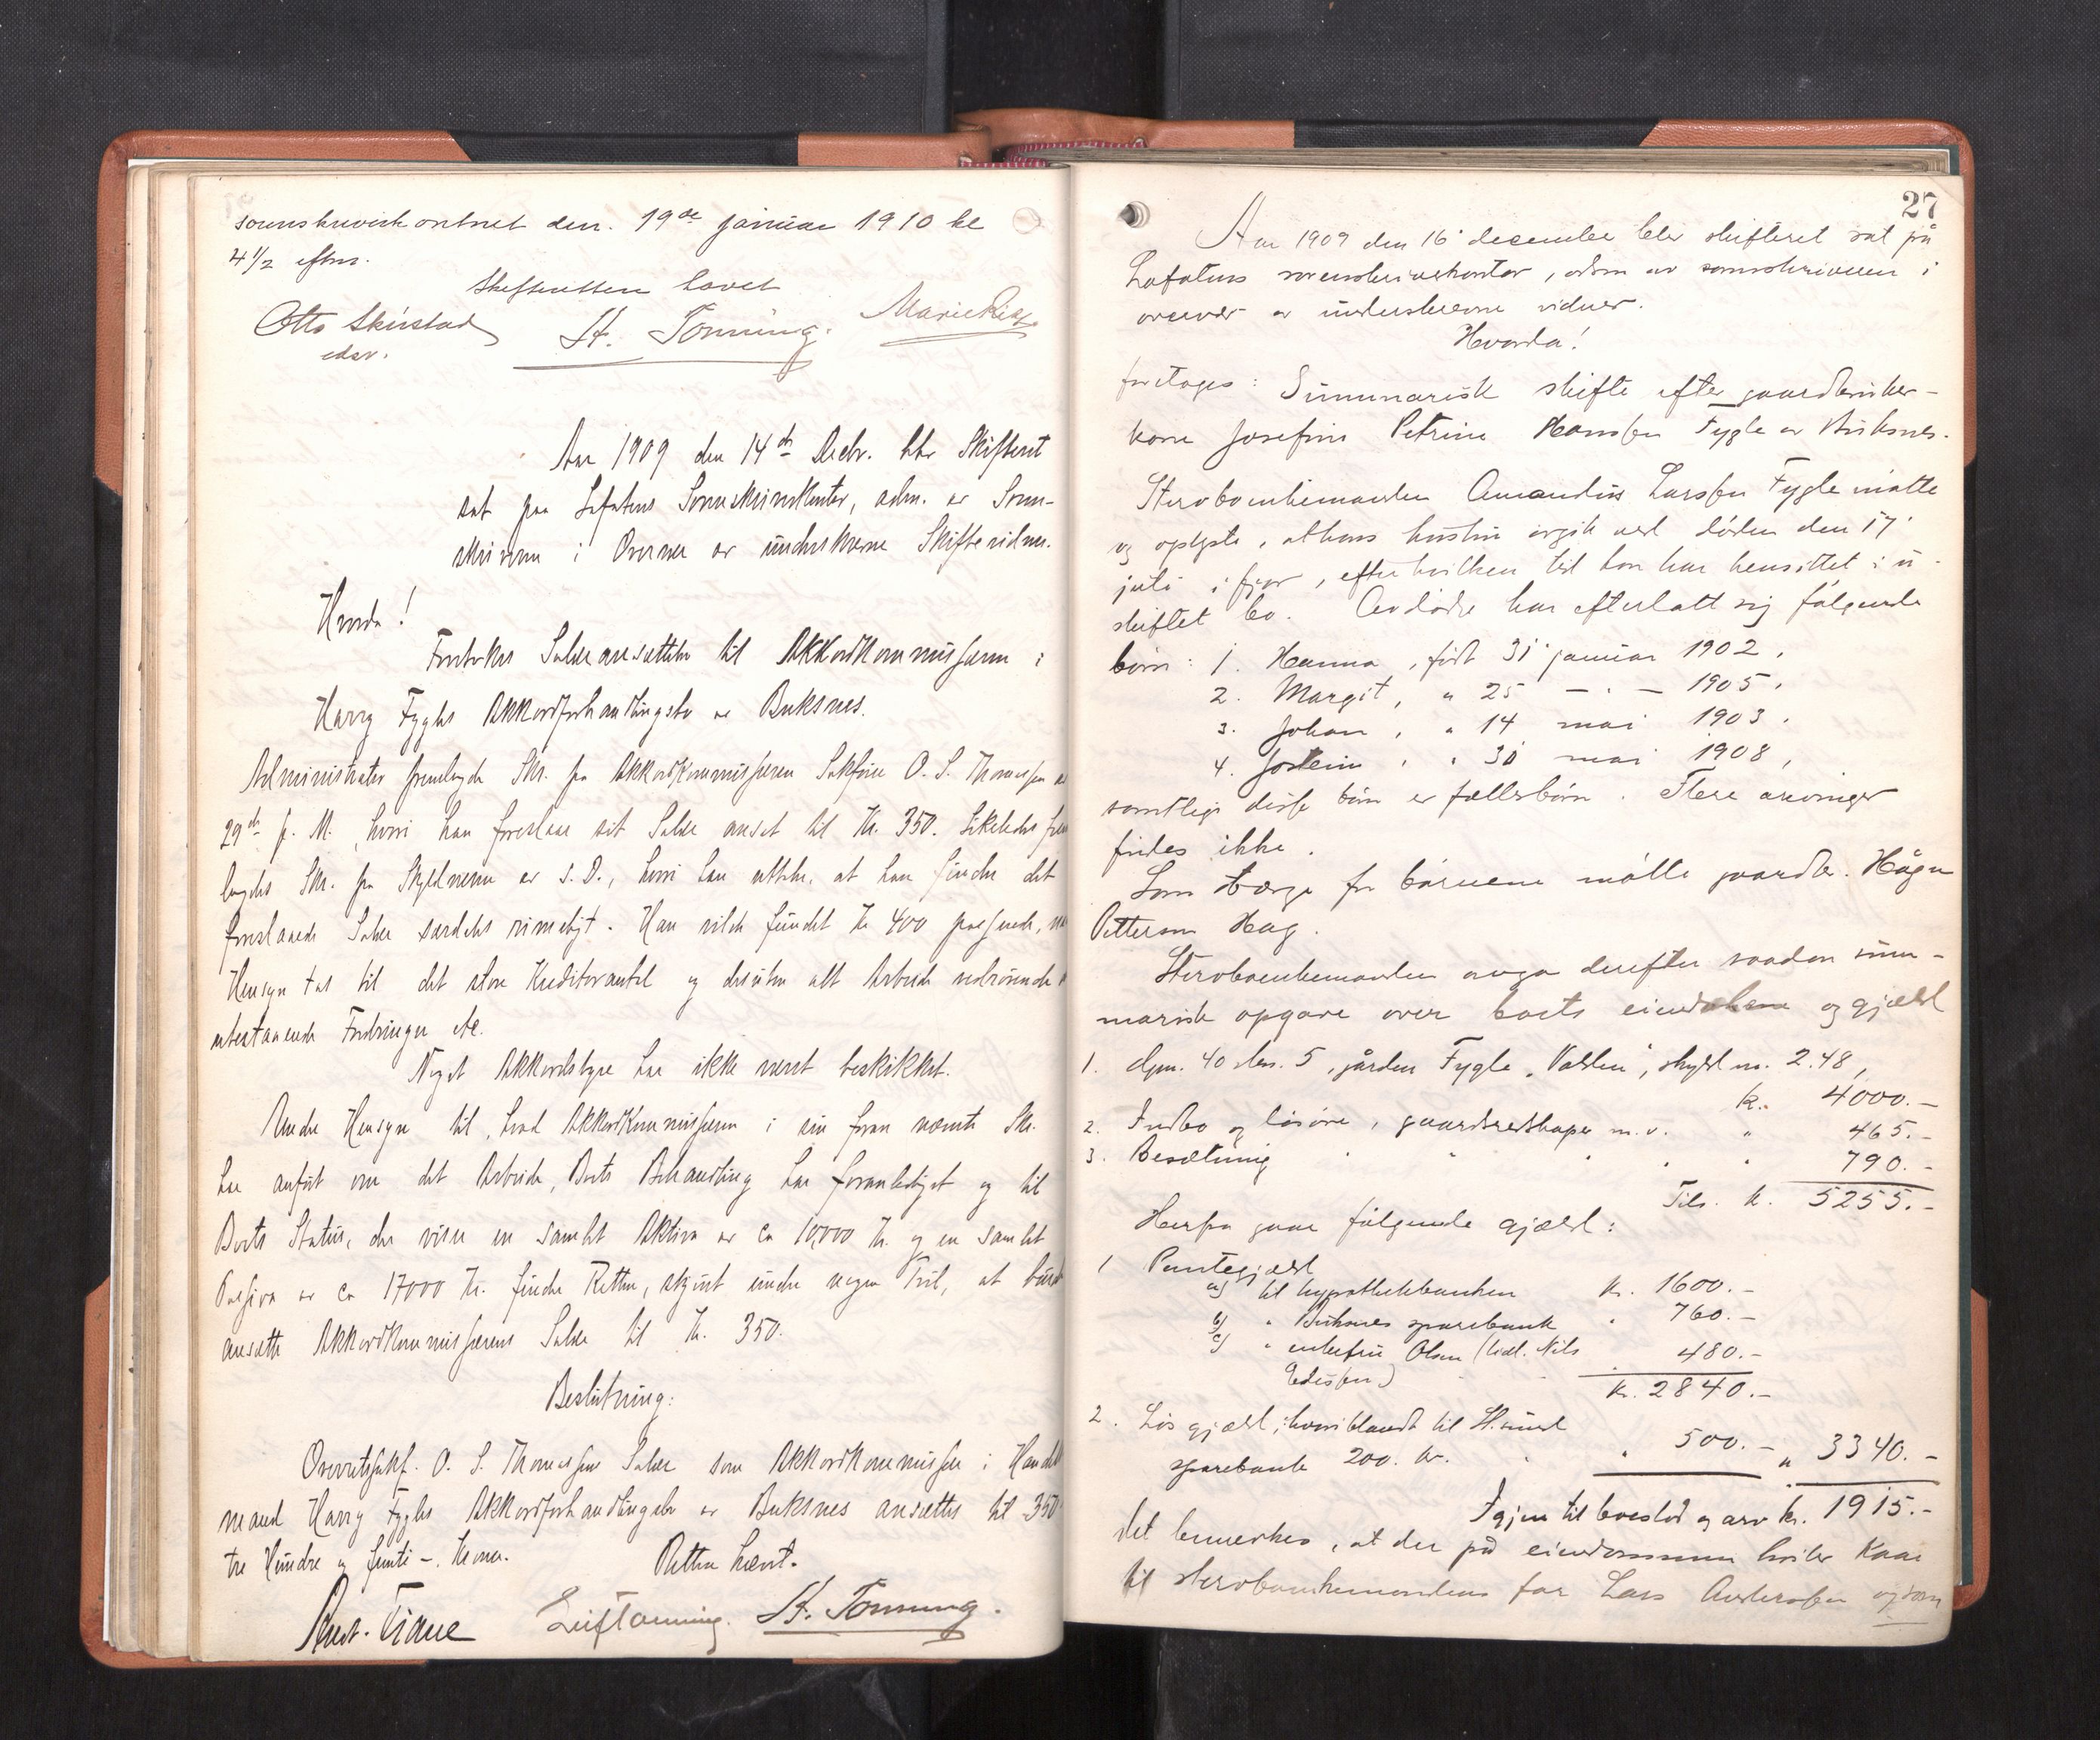 sorenskriverkontoret den. 19de januar 1910 kl
4 1/2 eftm.
Skifteretten hævet
Otto Skirstad St. Tønning. Marie
edsv.
Aar 1909 den 14de Decbr. blev Skifteret
sat paa Lofotens Sorenskriverkontor, adm. av Soren-
skriveren i Overvær av underskrevne Skiftevidner.
Hvorda!
Foretokes Salæransættelse til Akkordkommissæren i
Harry Fygles Akkordforhandlingsbo av Buksnes.
Administrator fremlagde Skr. fra Akkordkommissæren Sakfører O. S. Thomessen av
29de f. M., hvori han foreslaar sit Salær ansat til Kr. 350. Likeledes frem
lagdes Skr. fra Skyldneren av s. D., hvori han uttaler, at han finder det
foreslaaede Salær særdeles rimeligt. Han vilde fundet Kr 400 passende, naar
Hensyn tas til det store Kreditorantal og desuten alt Arbeide vedrørende
utestaaende Fordringer etc.
Noget Akkordstyre har ikke været beskikket.
Under Hensyn til, hvad Akkordkommissæren i sin foran nævnte Skr.
har anført om det Arbeide, Boets Behandling har foranlediget og til
Boets Status, der viser en samlet Aktiva av ca 10,000 Kr. og en samlet
Passiva av ca 17000 Kr. finder Retten, skjønt under nogen Tvil, at burde
ansætte Akkordkommissærens Salær til Kr. 350.
Beslutning:
Overretssakf. O. S. Thomessens Salær som Akkordkommissær i Handels
mand Harry Fygles Akkordforhandlingsbo av Buksnes ansættes til 350
tre Hundre og femti -. Kroner.
Retten hævet.
Leif Tønning. St. Tønning.
27
Aar 1909 den 16 december blev skifteret sat på
Lofotens sorenskriverkontor, adm av sorenskriveren i
overvær av underskrevne vidner.
Hvorda!
foretages: Summarisk skifte efter gaardbruker-
kone Josefine Petrine Hanssen Fygle av Buksnes.
Stervboenkemanden Amandus Larssen Fygle møtte
og oplyste, at hans hustru avgik ved døden den 17
juli i fjor, efter hvilken tid han har hensittet i u-
skiftet bo. Avdøde har efterlatt sig følgende
børn: 1. Hanna, født 31 januar 1902,
2. Margit, " 25 - . - 1905,
3. Johan, " 14 mai 1903.
4. Jostein, " 30 mai 1908,
samtlige disse børn er fællesbørn. Flere arvinger
findes ikke.
Som værge for børnene møtte gaardbr. Hågen
Pettersen Hag.
Stervboenkemanden avga derefter saadan sum-
marisk opgave over boets eiendele og gjæld
1. Gjm. 40 brn. 5, gården Fygle "Volden", skyld m. 2.48,
k. 4000.-
2. Indbo og løsøre, gaardsredskaper m.v. " 465.-
3. Besætning " 790.-
Tils. k. 5255.-
Herfra gaar følgende gjæld:
1 Pantegjæld
a) til hypothekbanken kr. 1600.-
b) " Buksnes sparebank " 760.-
c) " enkefru Olsen (tidl. Nils " 480.-
Edissen)
Kr. 2840.-
2. Løs gjæld, hvoriblandt til Stsund
sparebank 200. kr. " 500.- " 3340.-
Igjen til boeslod og arv kr. 1915.-
Det bemerkes, at der på eiendommen hviler kaar
til stervboenkemandens far Lars Anderssen og som